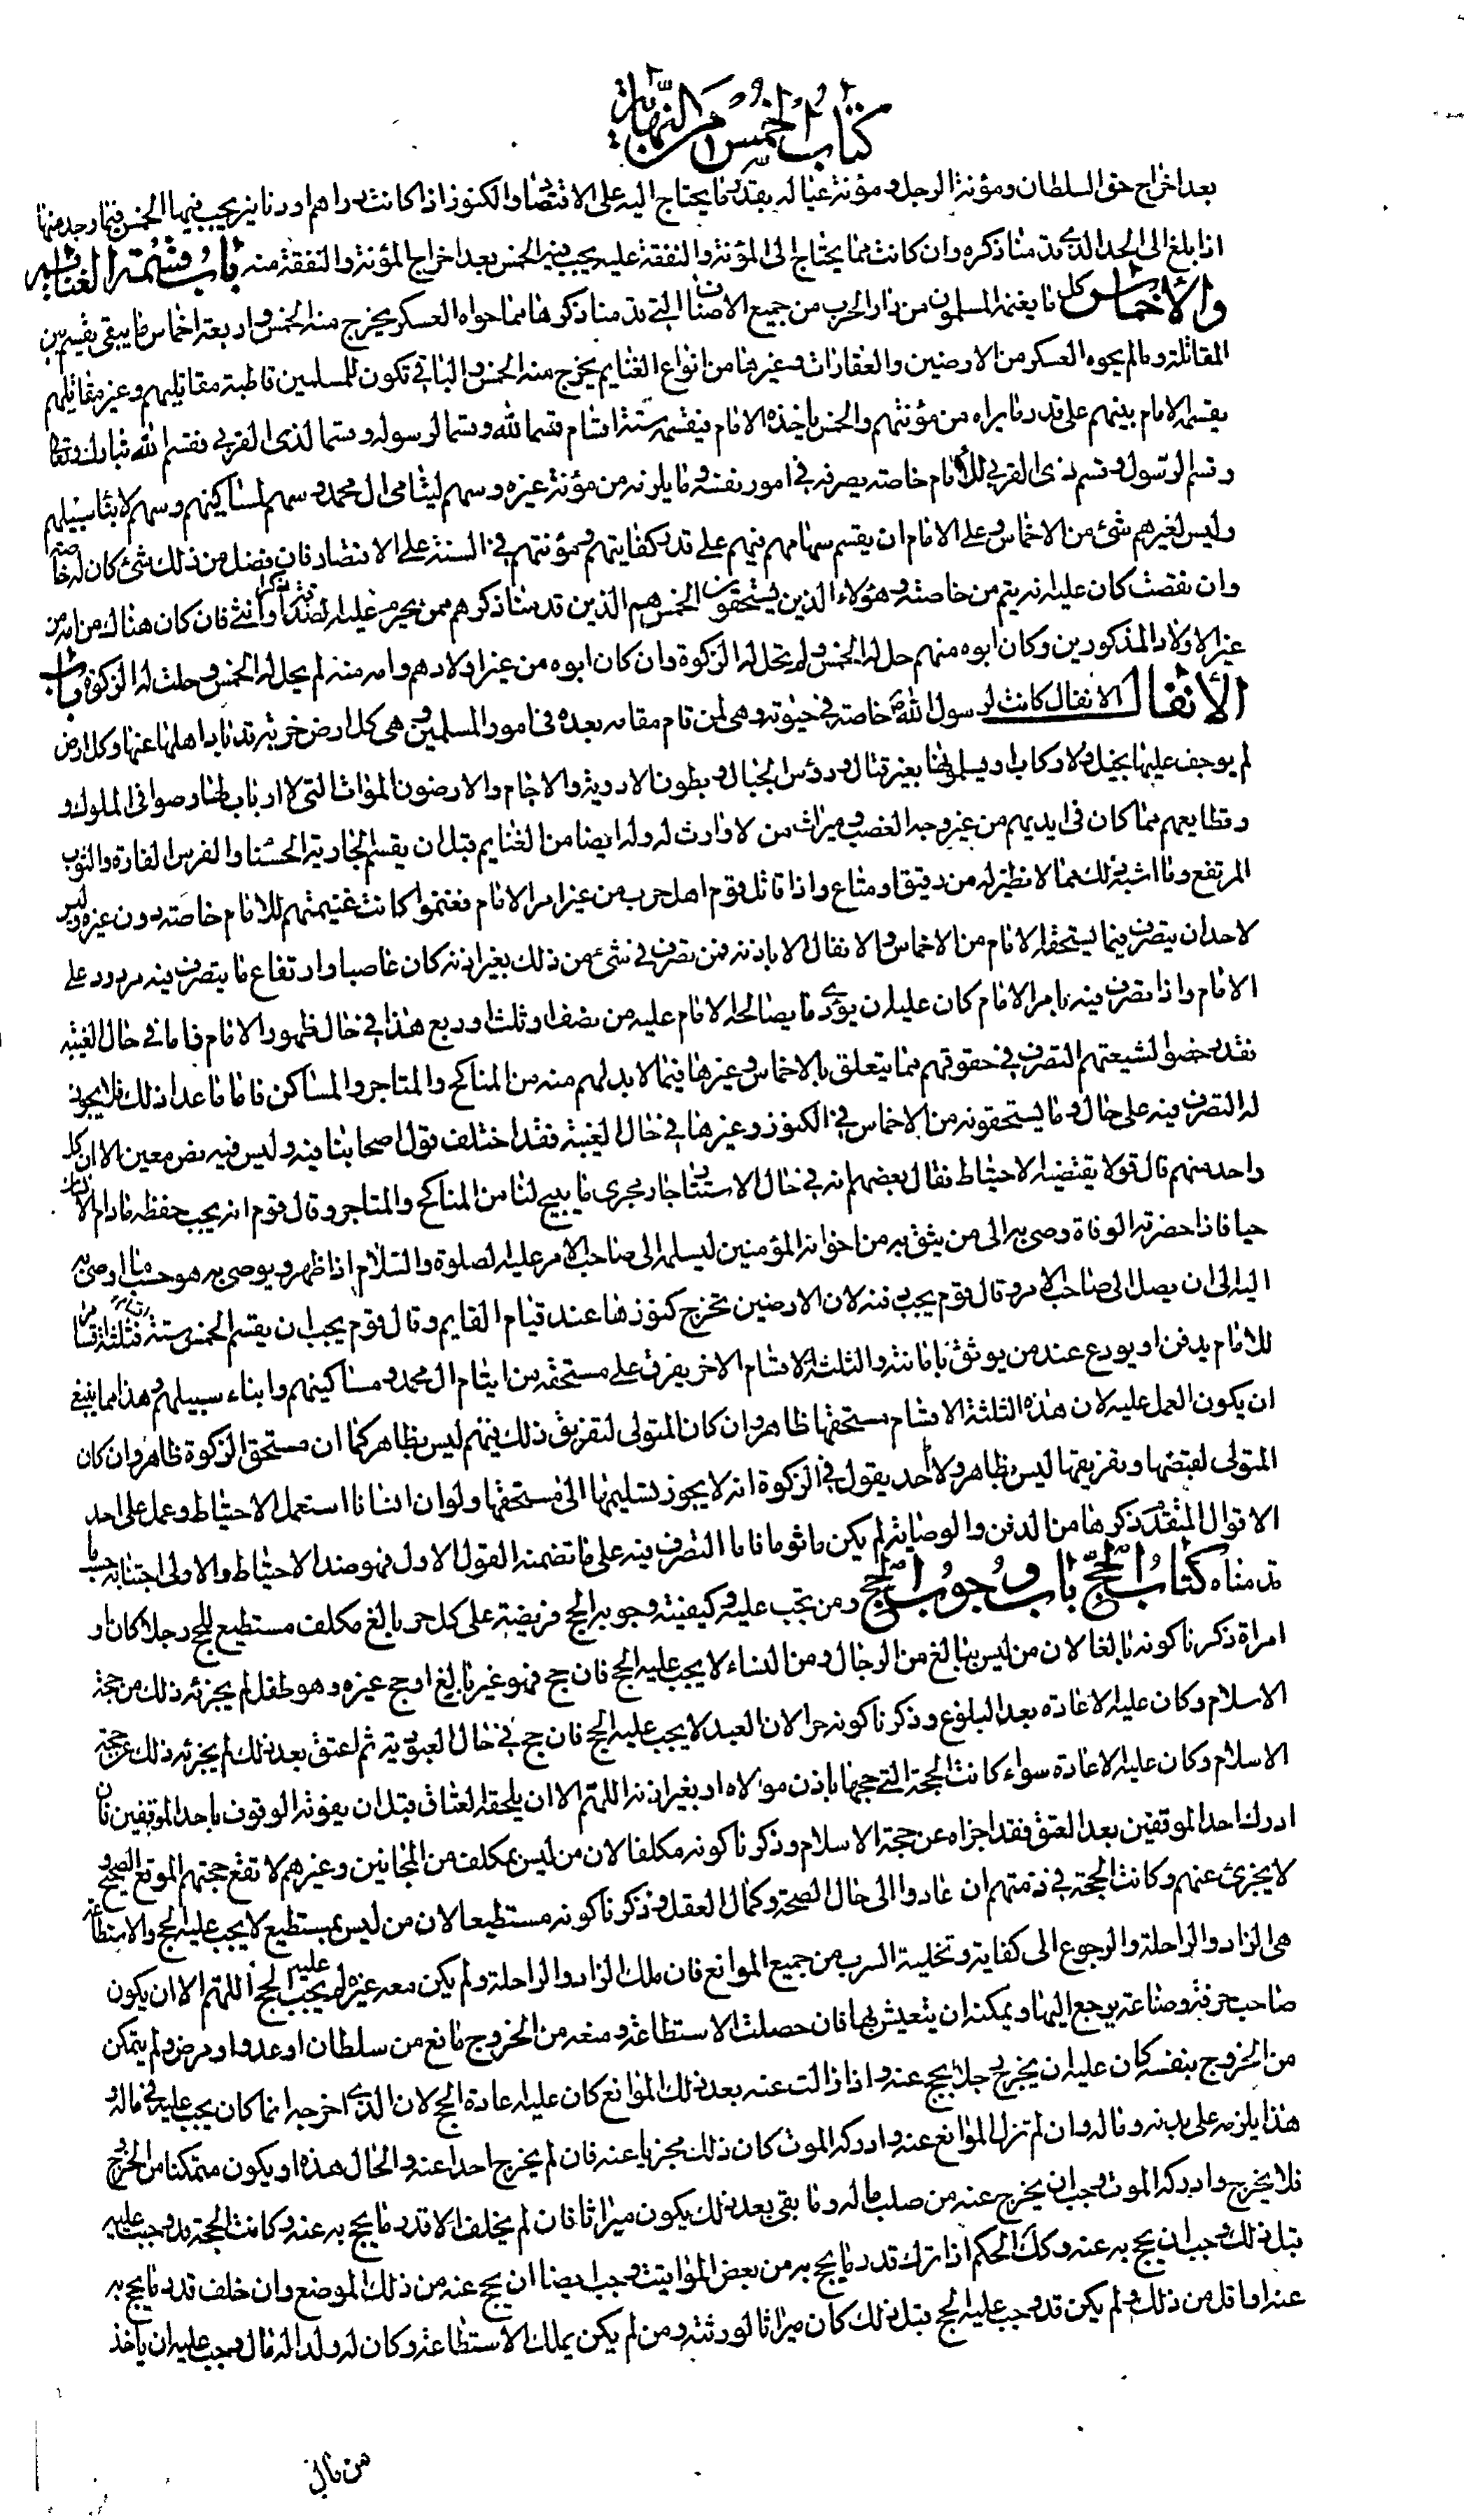 كتاب الخمس من النهاية
بعد اخراج حق السلطان ومؤنة الرجل ومؤنة عياله بقدر ما يحتاج اليه على الاقتصاد والكنوز اذا كانت دراهم او دنانير يجب فيها الخمس فيما وجد منها
اذا بلغ الى الحد الذي قدمنا ذكره وان كانت مما يحتاج الى المؤنة والنفقة عليه يجب فيه الخمس بعد اخراج المؤنة والنفقة منه باب قسمة الغنايم
والاخماس كل ما يغنمه المسلمون من دار الحرب من جميع الاصناف التي قدمنا ذكرها مما حواه العسكر يخرج منه الخمس واربعة اخماس ما يبقى يقسم بين
المقاتلة وما لم يحوه العسكر من الارضين والعقارات وغيرها من انواع الغنايم يخرج منه الخمس والباقي تكون للمسلمين قاطبة مقاتليهم وغير مقاتليهم
يقسمه الامام بينهم على قدر ما يراه من مؤنتهم والخمس ياخذه الامام فيقسمه ستة اقسام قسما لله وقسما لرسوله وقسما لذى القربى فقسم الله تبارك وتعالى
وقسم الرسول وقسم ذى القربى للامام خاصة يصرفه في امور نفسه وما يلزمه من مؤنة غيره وسهم ليتامى ال محمد وسهم لمساكينهم وسهم لابناء سبيلهم
وليس لغيرهم شئ من الاخماس وعلى الامام ان يقسم سهامهم فيهم على قدر كفايتهم ومؤنتهم في السنة على الاقتصاد فان فضل من ذلك شئ كان له خاصة
وان نقصت كان عليه ان يتم من خاصته وهؤلاء الذين يستحقون الخمس هم الذين قدمنا ذكرهم ممن يحرم عليه الصدقة ذكرا او انثى فان كان هناك من امه من
غير الاولاد المذكورين وكان ابوه منهم حل له الخمس ولم تحل له الزكوة وان كان ابوه من غير اولادهم وامه منهم لم يحل له الخمس وحلت له الزكوة باب
الانفال الانفال كانت لرسول الله ص خاصة في حيوته وهي لمن قام مقامه بعده في امور المسلمين وهي كل ارض خربة قد باد اهلها عنها وكل ارض
لم يوجف عليها بخيل ولا ركاب او يسلمونها بغير قتال ورؤس الجبال وبطون الاودية والاجام والارضون الموات التي لا ارباب لها وصوافى الملوك و
وقطايعهم مما كان فى ايديهم من غير وجه الغصب وميراث من لا وارث له وله ايضا من الغنايم قبل ان يقسم الجارية الحسناء والفرس الفارة والثوب
المرتفع وما اشبه ذلك مما لا نظير له من دقيق او متاع واذا قاتل قوم اهل حرب من غير امر الامام فغنموا كانت غنيمتهم للامام خاصة دون غيره وليس
لاحد ان يتصرف فيما يستحقه الامام من الاخماس والانفال الا باذنه فمن تصرف في شئ من ذلك بغير اذنه كان غاصبا وارتفاع ما يتصرف فيه مردود على
الامام واذا تصرف فيه بامر الامام كان عليه ان يؤدي ما يصالحه الامام عليه من نصف او ثلث او ربع هذا في حال ظهور الامام فاما في حال الغيبة
فقد رخصوا لشيعتهم التصرف في حقوقهم مما يتعلق بالاخماس وغيرها فيما لا بد لهم منه من المناكح والمتاجر والمساكن فاما ما عدا ذلك فلا يجوز
له التصرف فيه على حال وما يستحقونه من الاخماس في الكنوز وغيرها في حال الغيبة فقد اختلف قول اصحابنا فيه وليس فيه نص معين الا ان كل
واحد منهم قال قولا يقتضيه الاحتياط فقال بعضهم انه في حال الاستتار جار مجرى ما ابيح لنا من المناكح والمتاجر وقال قوم انه يجب حفظه مادام الانسان
حيا فاذا حضرته الوفاة وصى به الى من يثق به من اخوانه المؤمنين ليسلمه الى صاحب الامر عليه الصلوة والسلام اذا ظهر ويوصى به هو حسب ما اوصى به
اليه الى ان يصل الى صاحب الامر وقال قوم يجب دفنه لان الارضين تخرج كنوزها عند قيام القايم وقال قوم يجب ان يقسم الخمس ستة اقسام فثلثة اقسام
للامام يدفن او يودع عند من يوثق بامانته والثلثة الاقسام الاخر يفرق على مستحقه من ايتام ال محمد ومساكينهم وابناء سبيلهم وهذا مما ينبغى
ان يكون العمل عليه لان هذه الثلثة الاقسام مستحقها ظاهر وان كان المتولى لتفريق ذلك فيهم ليس بظاهر كما ان مستحق الزكوة ظاهر وان كان
المتولى لقبضها وتفريقها ليس بظاهر ولا احد يقول في الزكوة انه لا يجوز تسليمها الى مستحقها ولو ان انسانا استعمل الاحتياط وعمل على احد
الاقوال المقدم ذكرها من الدفن والوصاية لم يكن ماثوما فاما التصرف فيه على ما تضمنه القول الاول فهو ضد الاحتياط والاولى اجتنابه حسب ما
قدمناه كتاب الحج باب وجوب الحج ومن تجب عليه وكيفيته وجوبه الحج فريضة على كل حر بالغ مكلف مستطيع للحج رجلا كان او
امراة ذكرنا كونه بالغا لان من ليس ببالغ من الرجال ومن النساء لا يجب عليه الحج فان حج فهو غير بالغ او حج غيره وهو طفل لم يجزئه ذلك من حجة
الاسلام وكان عليه الاعادة بعد البلوغ وذكرنا كونه حرا لان العبد لا يجب عليه الحج فان حج في حال العبودية ثم اعتق بعد ذلك لم يجزئه ذلك عن حجة
الاسلام وكان عليه الاعادة سواء كانت الحجة التي حجها باذن مولاه او بغير اذنه اللهم الا ان يلحقه العتاق قبل ان يفوته الوقوف باحد الموقفين فان
ادرك احد الموقفين بعد العتق فقد اجزاه عن حجة الاسلام وذكرنا كونه مكلفا لان من ليس بمكلف من المجانين وغيرهم لا تقع حجتهم الموقع الصحيح و
لا يجزئ عنهم وكانت الحجة في ذمتهم ان عادوا الى حال الصحة وكمال العقل وذكرنا كونه مستطيعا لان من ليس بمستطيع لا يجب عليه الحج والاستطاعة
هى الزاد والراحلة والرجوع الى كفاية وتخلية السرب من جميع الموانع فان ملك الزاد والراحلة ولم يكن معه غيره لم يجب عليه الحج اللهم الا ان يكون
صاحب حرفة وصناعة يرجع اليها ويمكنه ان يتعيش بها فان حصلت الاستطاعة ومنعه من الخروج مانع من سلطان او عدو او مرض ولم يتمكن
من الخروج بنفسه كان عليه ان يخرج رجلا يحج عنه واذا زالت عنه بعد ذلك الموانع كان عليه اعادة الحج لان الذي اخرجه انما كان يجب عليه في ماله و
هذا يلزمه على بدنه وماله وان لم تزل الموانع عنه وادركه الموت كان ذلك مجزيا عنه فان لم يخرج احدا عنه والحال هذه او يكون متمكنا من الخروج
فلا يخرج وادركه الموت وجب ان يخرج عنه من صلب ماله وما بقى بعد ذلك يكون ميراثا فان لم يخلف الا قدر ما يحج به عنه وكانت الحجة قد وجبت عليه
قبل ذلك وجب ان يحج به عنه وكك الحكم اذا ترك قدر ما يحج به من بعض المواقيت وجب ايضا ان يحج عنه من ذلك الموضع وان خلف قدر ما يحج به
عنه او اقل من ذلك ولم يكن قد وجب عليه الحج قبل ذلك كان ميراثا لورثته ومن لم يكن يملك الاستطاعة وكان له ولد له مال وجب عليه ان ياخذ
من مال